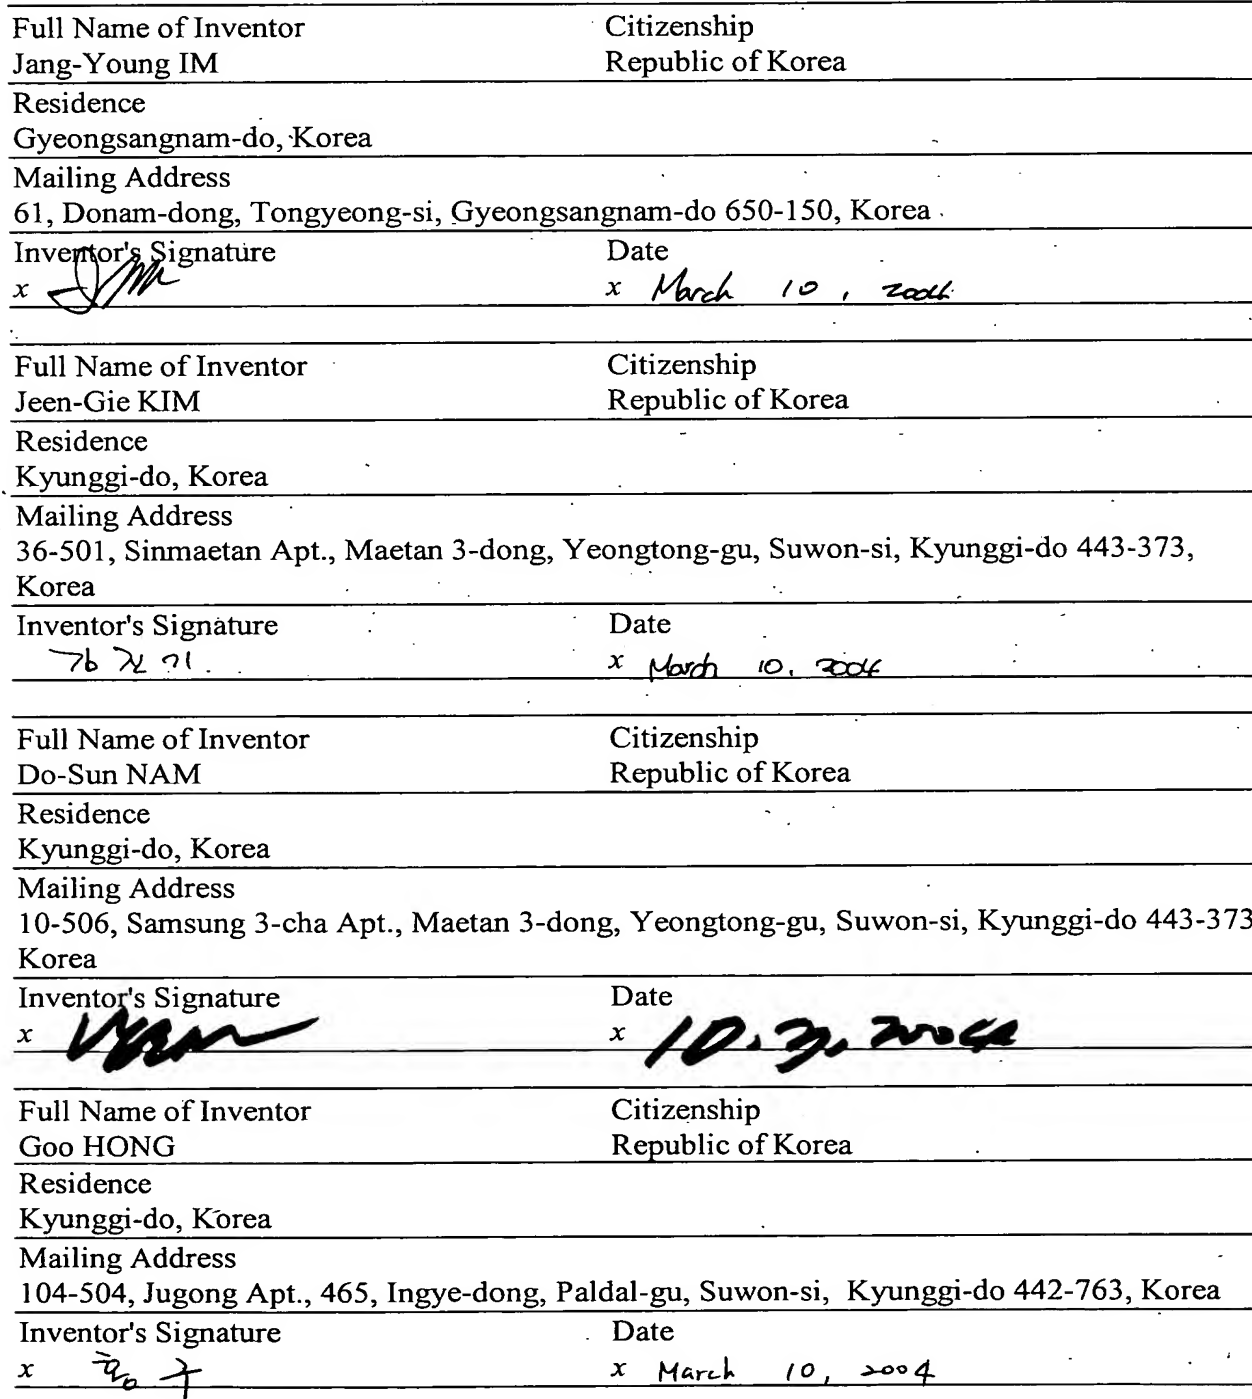 Full Name of Inventor Citizenship
Jang-Young IM Republic of Korea
Residence
Gyeongsangnam-do, Korea
Mailing Address
61, Donam-dong, Tongyeong-si, Gyeongsangnam-do 650-150, Korea
Inventor's Signature Date
x x March 10, 2004
Full Name of Inventor Citizenship
Jeen-Gie KIM Republic of Korea
Residence
Kyunggi-do, Korea
Mailing Address
36-501, Sinmaetan Apt., Maetan 3-dong, Yeongtong-gu, Suwon-si, Kyunggi-do 443-373,
Korea
Inventor's Signature Date
김진기 x March 10, 2004
Full Name of Inventor Citizenship
Do-Sun NAM Republic of Korea
Residence
Kyunggi-do, Korea
Mailing Address
10-506, Samsung 3-cha Apt., Maetan 3-dong, Yeongtong-gu, Suwon-si, Kyunggi-do 443-373
Korea
Inventor's Signature Date
x x 10. 3, 2004
Full Name of Inventor Citizenship
Goo HONG Republic of Korea
Residence
Kyunggi-do, Korea
Mailing Address
104-504, Jugong Apt., 465, Ingye-dong, Paldal-gu, Suwon-si, Kyunggi-do 442-763, Korea
Inventor's Signature Date
x 홍구 x March 10, 2004